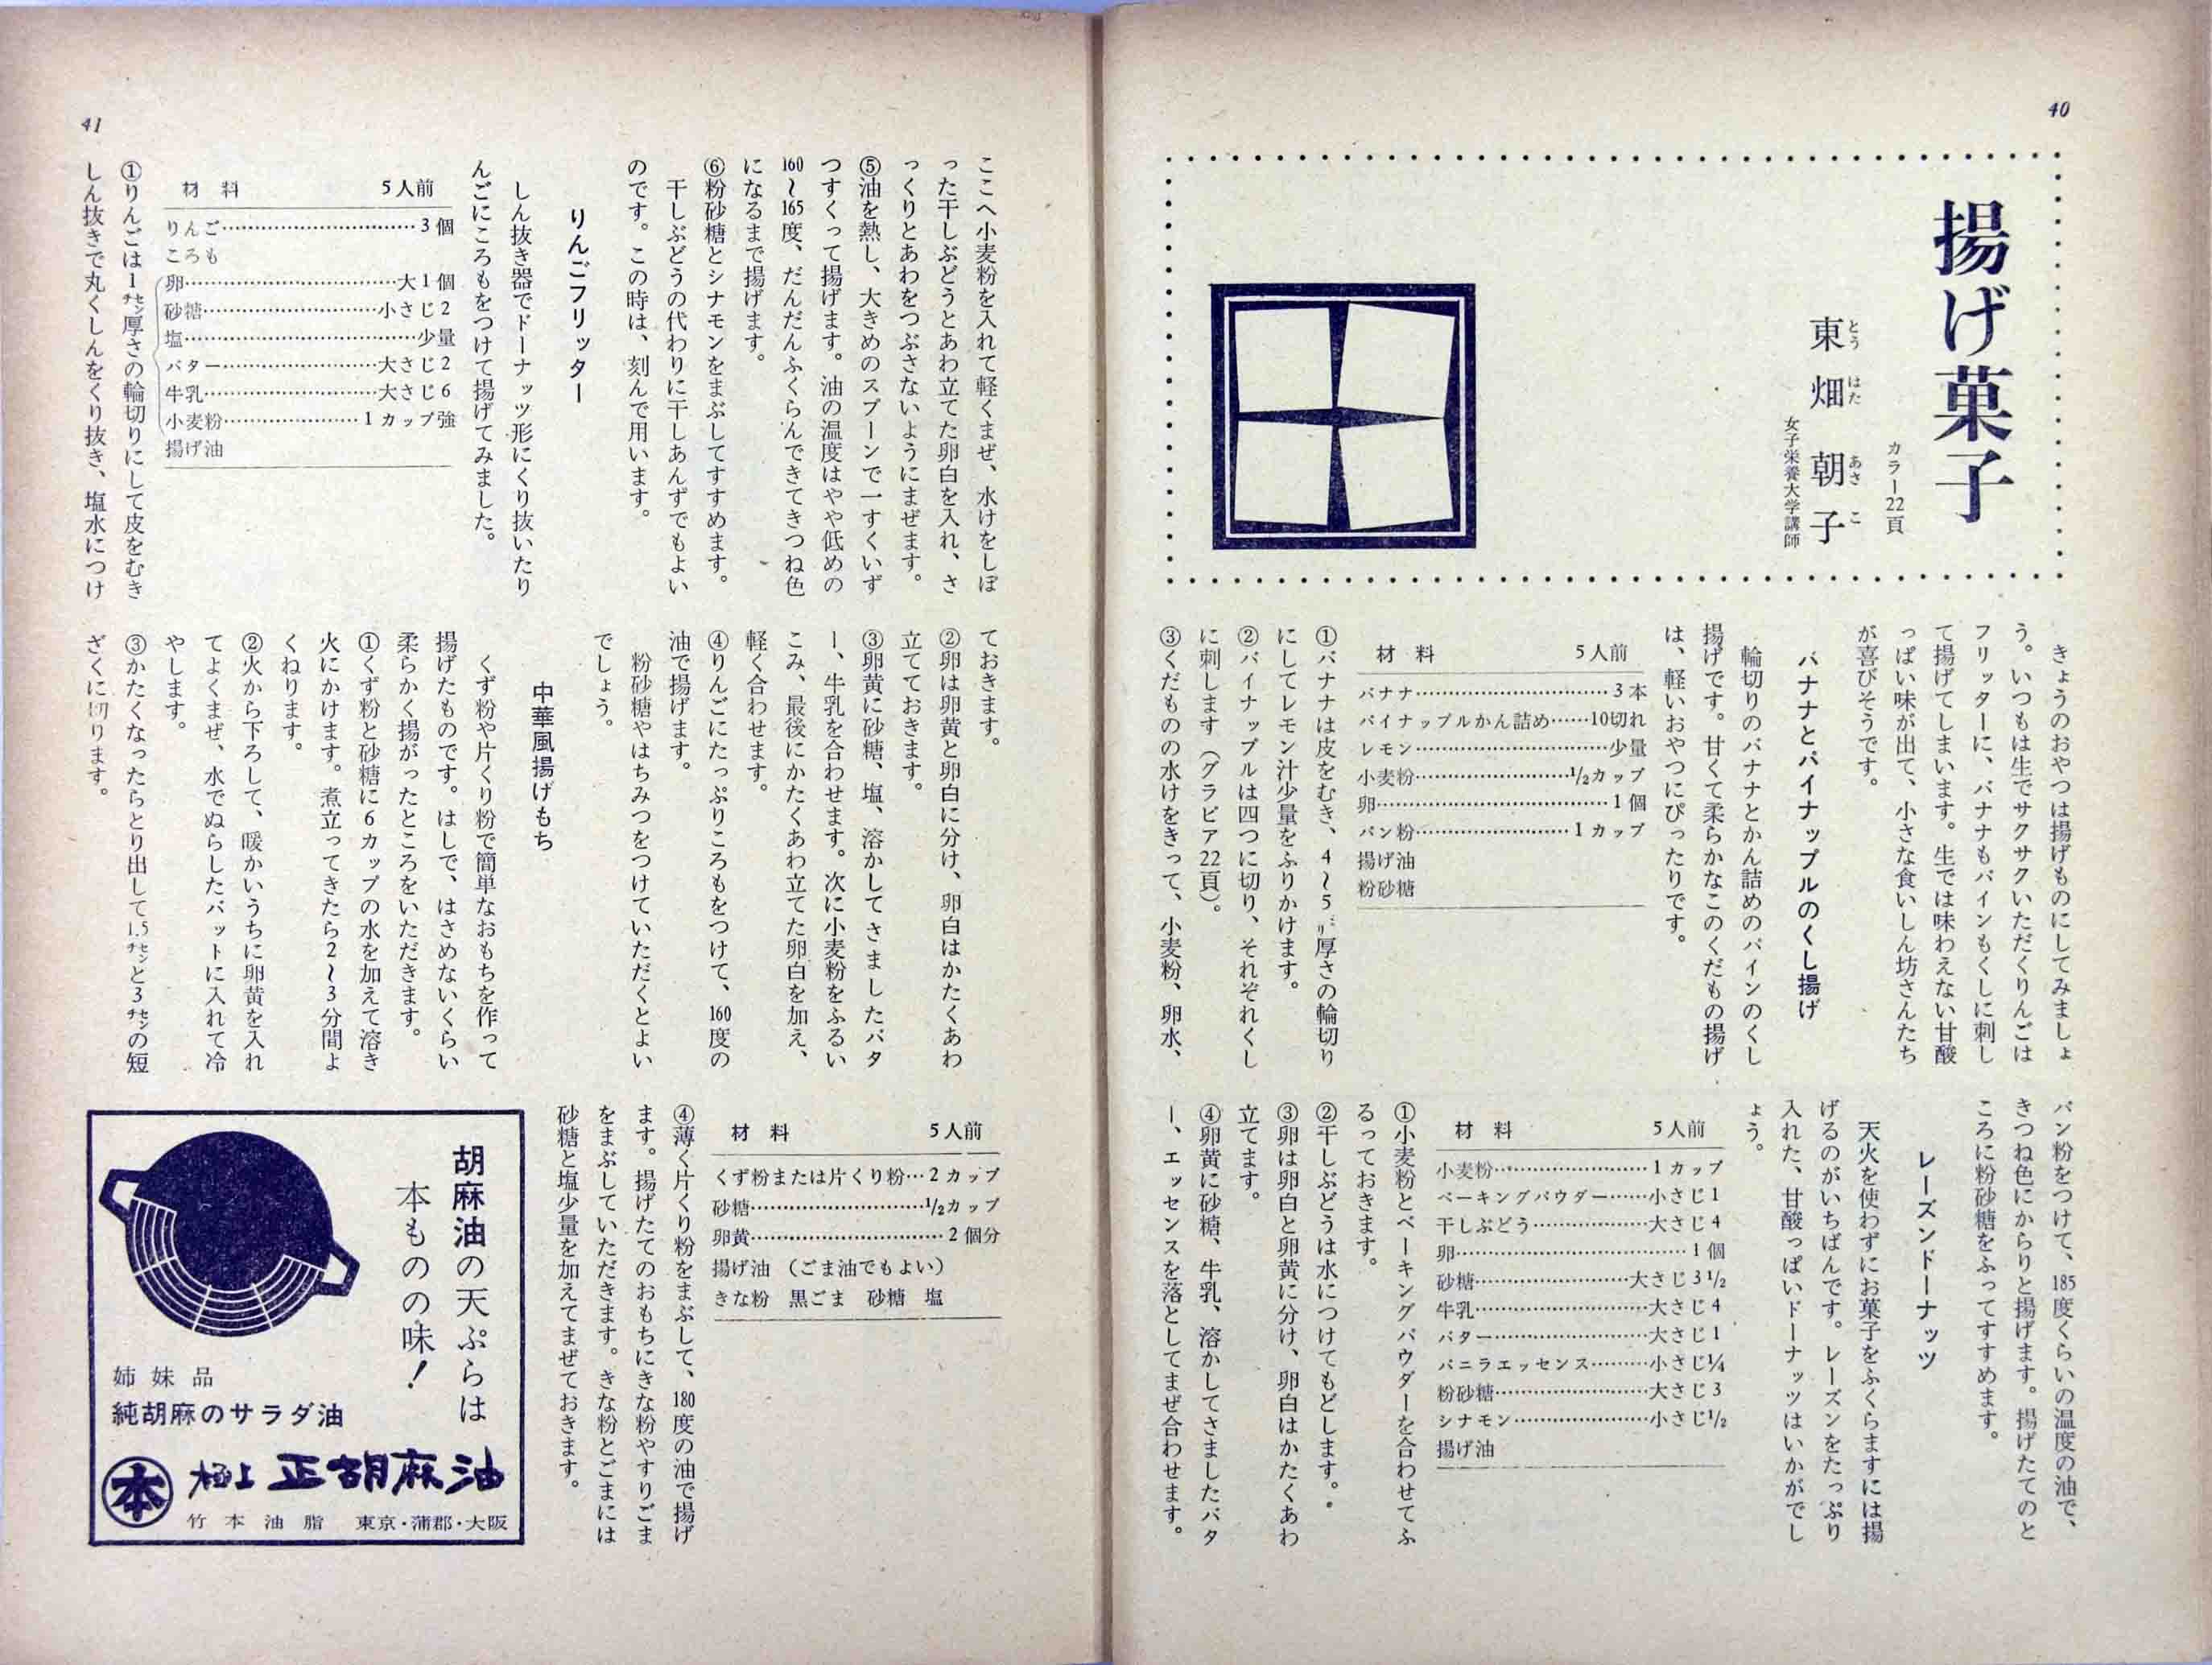 40
揚げ菓子
カラー22頁
東畑朝子
とうはたあさこ
女子栄養大学講師
きょうのおやつは揚げものにしてみましょ
う。いつもは生でサクサクいただくりんごは
フリッターに、バナナもパインもくしに刺し
て揚げてしまいます。生では味わえない甘酸
っぱい味が出て、小さな食いしん坊さんたち
が喜びそうです。
バナナとパイナップルのくし揚げ
輪切りのバナナとかん詰めのパインのくし
揚げです。甘くて柔らかなこのくだもの揚げ
は、軽いおやつにぴったりです。
材料 5人前
バナナ……3本
パイナップルかん詰め……10切れ
レモン……少量
小麦粉……1/2カップ
卵……1個
パン粉……1カップ
揚げ油
粉砂糖
①バナナは皮をむき、4〜5㍉厚さの輪切り
にしてレモン汁少量をふりかけます。
②パイナップルは四つに切り、それぞれくし
に刺します（グラビア22頁）。
③くだものの水けをきって、小麦粉、卵水、
パン粉をつけて、185度くらいの温度の油で、
きつね色にからりと揚げます。揚げたてのと
ころに粉砂糖をふってすすめます。
レーズンドーナッツ
天火を使わずにお菓子をふくらますには揚
げるのがいちばんです。レーズンをたっぷり
入れた、甘酸っぱいドーナッツはいかがでし
ょう。
材料 5人前
小麦粉……1カップ
ベーキングパウダー……小さじ1
干しぶどう……大さじ4
卵……1個
砂糖……大さじ3 1/2
牛乳……大さじ4
バター……大さじ1
バニラエッセンス……小さじ1/4
粉砂糖……大さじ3
シナモン……小さじ1/2
揚げ油
①小麦粉とベーキングパウダーを合わせてふ
るっておきます。
②干しぶどうは水につけてもどします。
③卵は卵白と卵黄に分け、卵白はかたくあわ
立てます。
④卵黄に砂糖、牛乳、溶かしてさましたバタ
ー、エッセンスを落としてまぜ合わせます。
41
ここへ小麦粉を入れて軽くまぜ、水けをしぼ
った干しぶどうとあわ立てた卵白を入れ、さ
っくりとあわをつぶさないようにまぜます。
⑤油を熱し、大きめのスプーンで一すくいず
つすくって揚げます。油の温度はやや低めの
160〜165度、だんだんふくらんできてきつね色
になるまで揚げます。
⑥粉砂糖とシナモンをまぶしてすすめます。
干しぶどうの代わりに干しあんずでもよい
のです。この時は、刻んで用います。
りんごフリッター
しん抜き器でドーナッツ形にくり抜いたり
んごにころもをつけて揚げてみました。
材料 5人前
りんご……3個
ころも
卵……大1個
砂糖……小さじ2
塩……少量
バター……大さじ2
牛乳……大さじ6
小麦粉……1カップ強
揚げ油
①りんごは1㌢厚さの輪切りにして皮をむき
しん抜きで丸くしんをくり抜き、塩水につけ
ておきます。
②卵は卵黄と卵白に分け、卵白はかたくあわ
立てておきます。
③卵黄に砂糖、塩、溶かしてさましたバタ
ー、牛乳を合わせます。次に小麦粉をふるい
こみ、最後にかたくあわ立てた卵白を加え、
軽く合わせます。
④りんごにたっぷりころもをつけて、160度の
油で揚げます。
粉砂糖やはちみつをつけていただくとよい
でしょう。
中華風揚げもち
くず粉や片くり粉で簡単なおもちを作って
揚げたものです。はしで、はさめないくらい
柔らかく揚がったところをいただきます。
①くず粉と砂糖に6カップの水を加えて溶き
火にかけます。煮立ってきたら2〜3分間よ
くねります。
②火から下ろして、暖かいうちに卵黄を入れ
てよくまぜ、水でぬらしたバットに入れて冷
やします。
③かたくなったらとり出して1.5㌢と3㌢の短
ざくに切ります。
材料 5人前
くず粉または片くり粉…2カップ
砂糖……1/2カップ
卵黄……2個分
揚げ油（ごま油でもよい）
きな粉 黒ごま 砂糖 塩
④薄く片くり粉をまぶして、180度の油で揚げ
ます。揚げたてのおもちにきな粉やすりごま
をまぶしていただきます。きな粉とごまには
砂糖と塩少量を加えてまぜておきます。
胡麻油の天ぷらは
本ものの味！
姉妹品
純胡麻のサラダ油
本 極上 正胡麻油
竹本油脂 東京・蒲郡・大阪